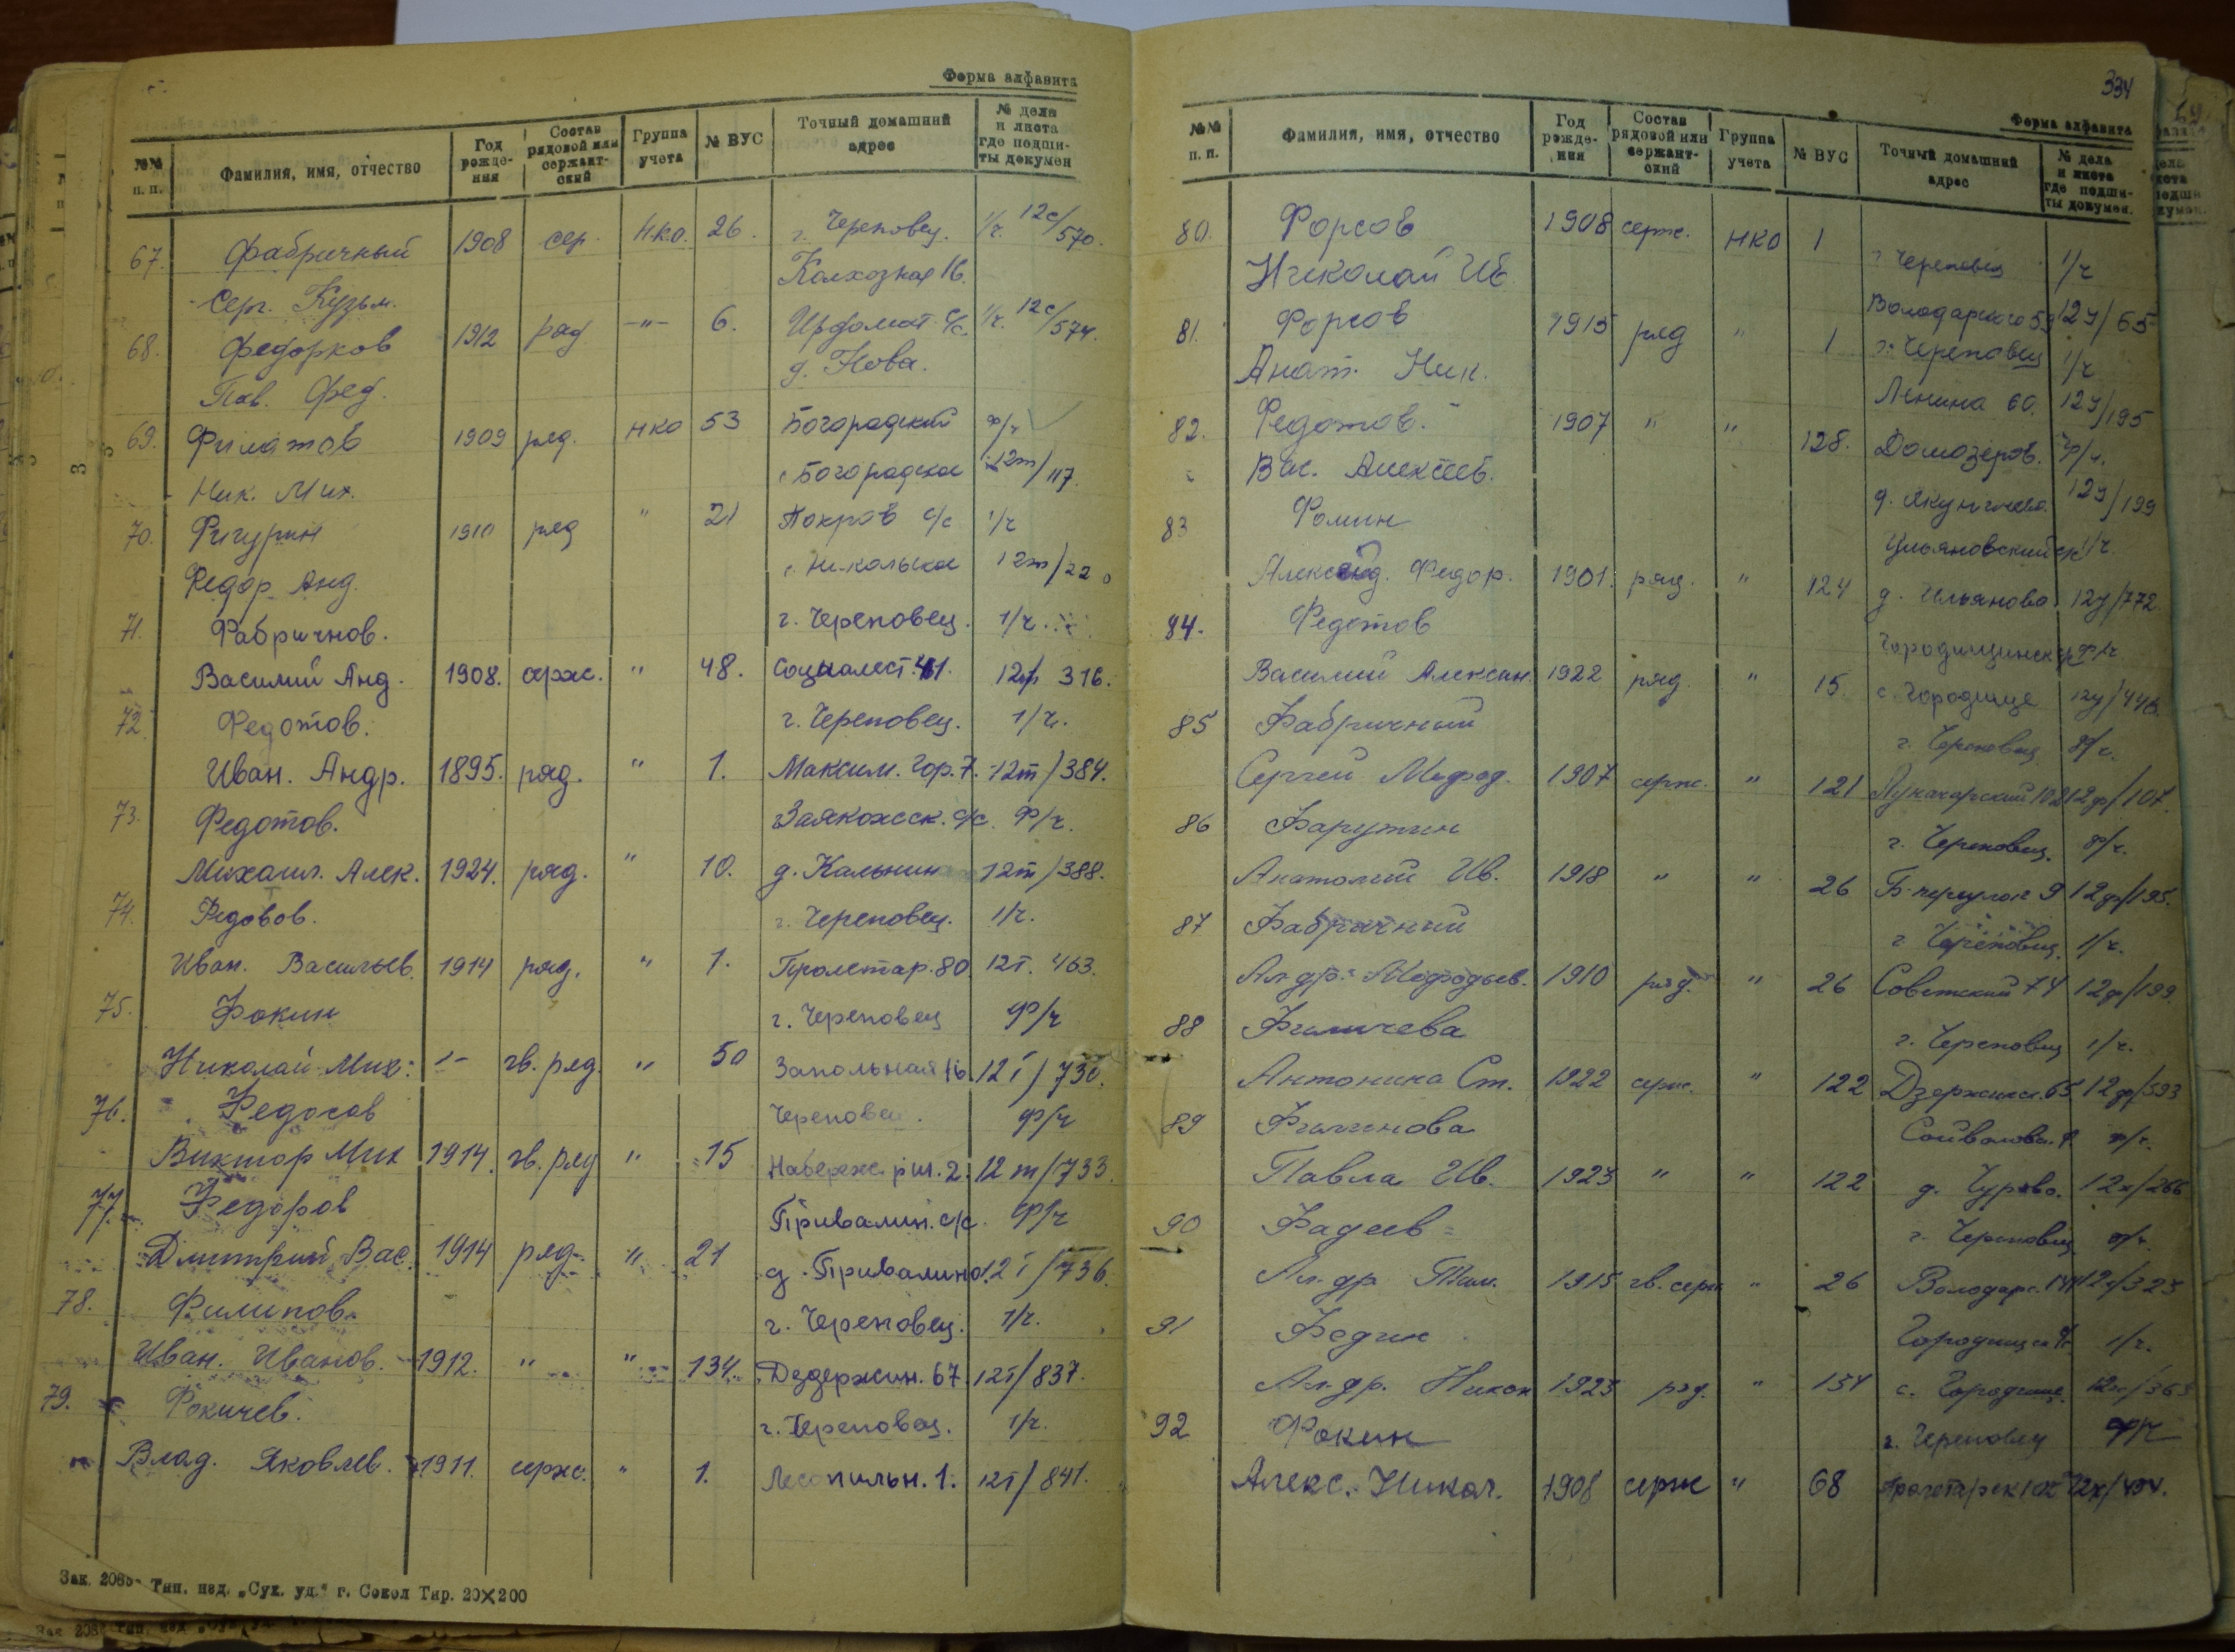 Форма алфавита
№№ п. п. Фамилия, имя, отчество Год рождения Состав рядовой или сержантский Группа учета № ВУС Точный домашний адрес № дела и листа где подшиты докумен
67. Фабричный 1908 сер. НКО. 26. г. Череповец. 1/ч. 12с/570.
Серг. Кузьм. Колхозная 16.
68. Федорков 1912 ряд -"- 6. Ирдомат. с/с. 1/ч. 12с/574.
Пав. Фед. д. Нова.
69. Филатов 1909 ряд. НКО 53 Богородский ф/ч
Ник. Мих. с. Богородское 12т/117.
70. Фигурин 1910 ряд " 21 Покров с/с 1/ч
Федор Анд. с. Никольское 12т/220
71. Фабричнов. г. Череповец. 1/ч.
Василий Анд. 1908. серж. " 48. Социалист. 41. 316.
72. Федотов. г. Череповец. 1/ч.
Иван. Андр. 1895. ряд. " 1. Максим. Гор. 7. 12т/384.
73. Федотов. с/с. Ф/ч.
Михаил. Алек. 1924. ряд. " 10. д. 12т/388.
74. г. Череповец. 1/ч.
Иван. Васильев. 1914 ряд. " 1. Пролетар. 80 12т. 463.
75. Фокин г. Череповец Ф/ч
Николай Мих. гв. ряд. " 50 Запольная 16 12т/730.
76. Федосов Череповец. Ф/ч
Виктор Мих 1914. гв. ряд " 15 12т/733.
77. Федоров Привалин. с/с. Ф/ч
Дмитрий Вас. 1914 ряд. " 21 д. Привалино. 12т/736.
78. Филипов. г. Череповец. 1/ч.
Иван. Иванов. 1912. " " 134. Дздержин. 67 12т/837.
79. Фокичев. г. Череповец. 1/ч.
Влад. Яковлев. 1911. серж. " 1. Лесопильн. 1. 12т/841.
Тип. изд. „Сух. уд." г. Сокол Тир. 20×200
334
Форма алфавита
№№ п. п. Фамилия, имя, отчество Год рождения Состав рядовой или сержантский Группа учета № ВУС Точный домашний адрес № дела и листа где подшиты докумен.
80. Форсов 1908 серж. НКО 1 г. Череповец 1/ч
Николай Ив. Володарского 12у/65
81. Форсов 1915 ряд " 1 г. Череповец 1/ч
Анат. Ник. Ленина 60. 12у/195
82. Федотов. 1907 " " 128. Домозеров. ф/ч.
Вас. Алексеев. д. Якунино 12у/199
83 Фомин Ульяновский 1/ч.
Александ. Федор. 1901. ряд. " 124 д. Ульяново 12у/772.
84. Федотов Ф/ч
Василий Алексан. 1922 ряд. " 15 с. Городище 12у/446.
85 Фабричный г. Череповец Ф/ч.
Сергей Мефод. 1907 серж. " 121 Луначарский 12ф/107.
86 г. Череповец. Ф/ч.
Анатолий Ив. 1918 " " 26 12ф/195.
87 Фабричный г. Череповец. 1/ч.
Ал-др. Мефодьев. 1910 ряд. " 26 Советский 74 12ф/199.
88 Филичева г. Череповец 1/ч.
Антонина Ст. 1922 серж. " 122 Дзержинс. 65 12ф/593
89 Филинова ф/ч.
Павла Ив. 1923 " " 122 д. Чурово. 12х/266
90 Фадеев г. Череповец ф/ч.
Ал-др 1915 гв. серж " 26 Володарс.
91 Федин 1/ч.
Ал-др. Никол 1923 ряд. " 134 с. Городище.
92 Фокин г. Череповец Ф/ч
Алекс. Никол. 1908 серж " 68